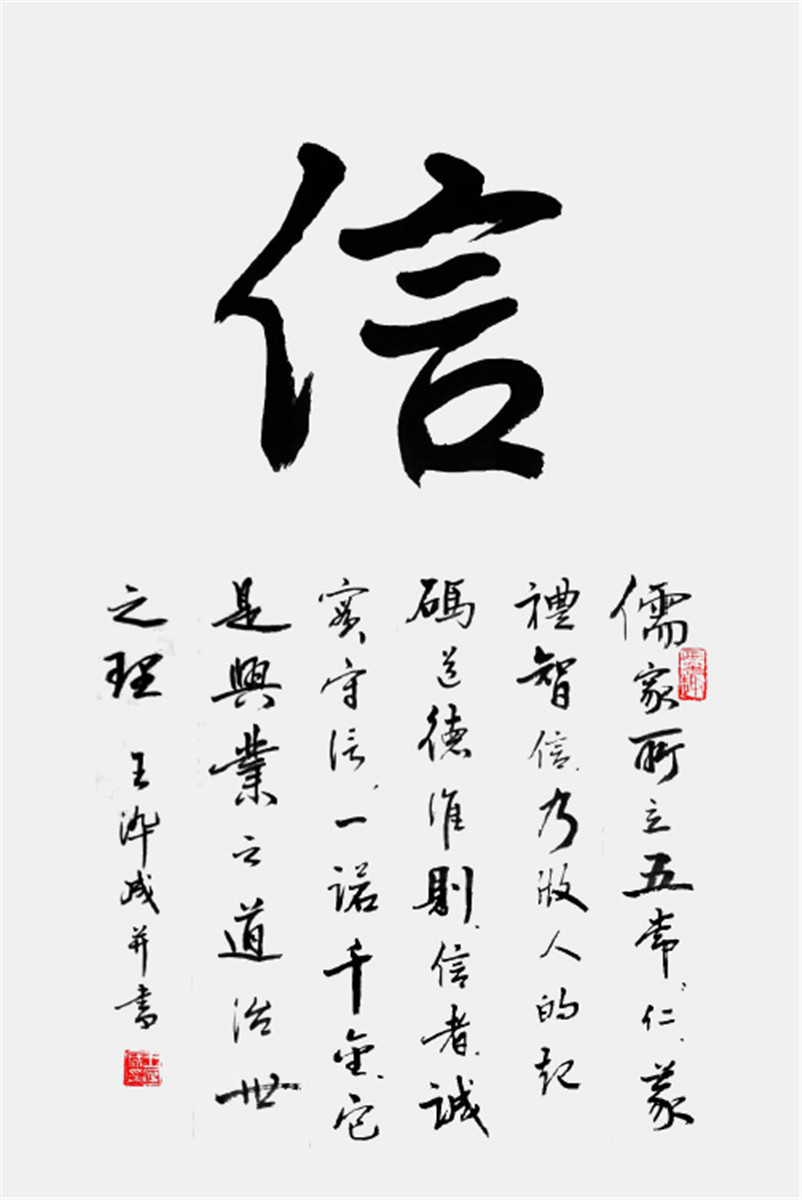 信
儒家所立五常、仁、義
禮智信、乃做人的起
碼道德准則、信者、誠
實守信、一諾千金、它
是興業之道治世
之理 王洚成并書